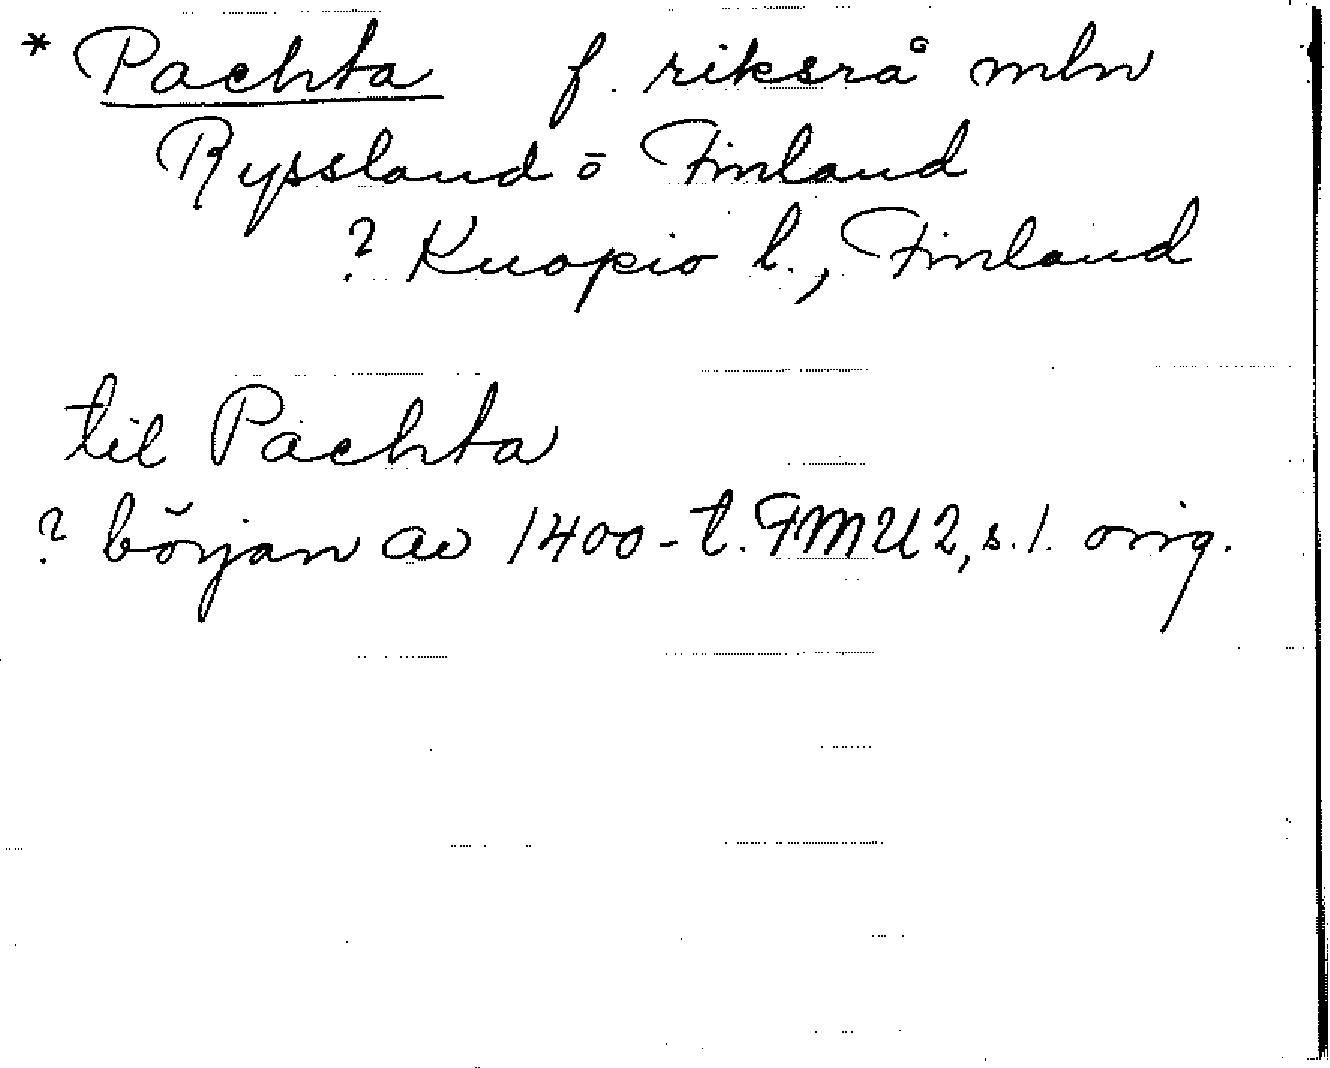 * Pachta f. riksrå mln
Ryssland o Finland
? Kuopio l., Finland
til Pachta
? början av 1400-t. FMU2, s.1. orig.